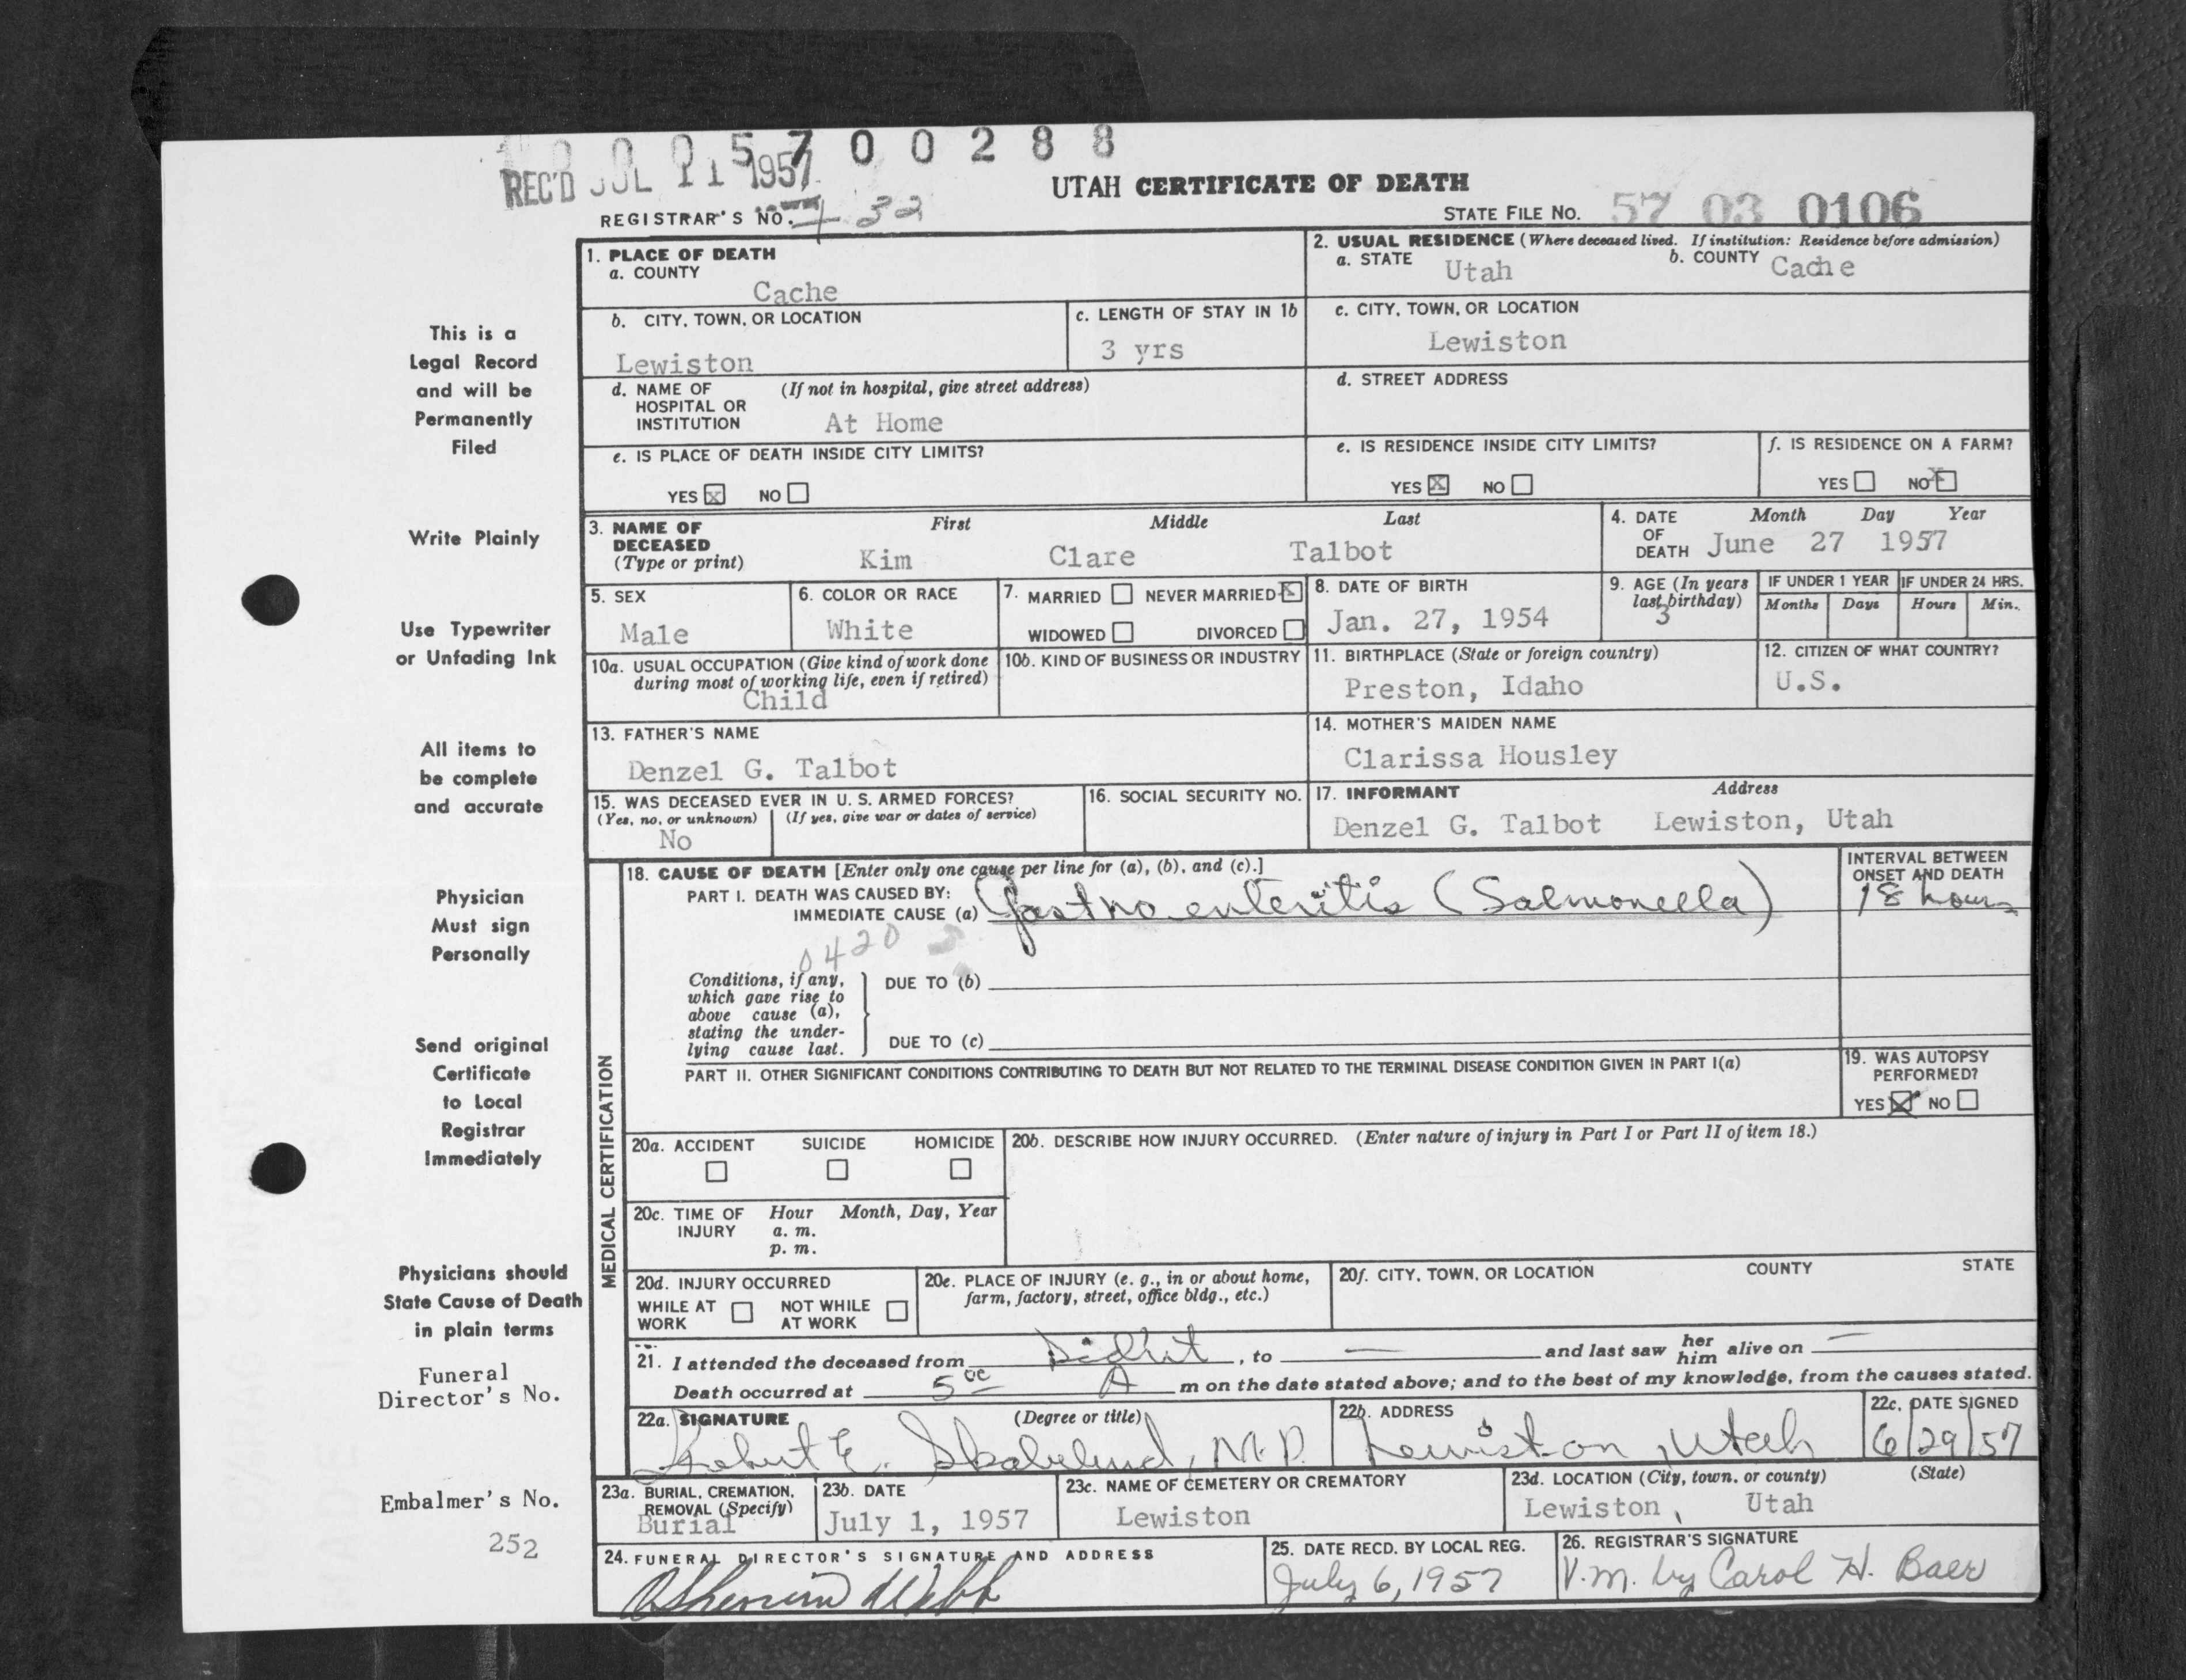 5 7 0 0 2 8 8
REC'D JUL 11 1957
UTAH CERTIFICATE OF DEATH
REGISTRAR'S NO. 32
STATE FILE NO. 57 03 0106
1. PLACE OF DEATH
a. COUNTY
Cache
2. USUAL RESIDENCE (Where deceased lived. If institution: Residence before admission)
a. STATE Utah b. COUNTY Cache
b. CITY, TOWN, OR LOCATION
Lewiston
c. LENGTH OF STAY IN 1b
3 yrs
c. CITY, TOWN, OR LOCATION
Lewiston
d. NAME OF HOSPITAL OR INSTITUTION (If not in hospital, give street address)
At Home
d. STREET ADDRESS
e. IS PLACE OF DEATH INSIDE CITY LIMITS?
YES X NO
e. IS RESIDENCE INSIDE CITY LIMITS?
YES X NO
f. IS RESIDENCE ON A FARM?
YES NO X
3. NAME OF DECEASED (Type or print)
First Middle Last
Kim Clare Talbot
4. DATE OF DEATH Month Day Year
June 27 1957
5. SEX
Male
6. COLOR OR RACE
White
7. MARRIED NEVER MARRIED X
WIDOWED DIVORCED
8. DATE OF BIRTH
Jan. 27, 1954
9. AGE (In years last birthday)
3
IF UNDER 1 YEAR
Months Days
IF UNDER 24 HRS.
Hours Min.
10a. USUAL OCCUPATION (Give kind of work done during most of working life, even if retired)
Child
10b. KIND OF BUSINESS OR INDUSTRY
11. BIRTHPLACE (State or foreign country)
Preston, Idaho
12. CITIZEN OF WHAT COUNTRY?
U.S.
13. FATHER'S NAME
Denzel G. Talbot
14. MOTHER'S MAIDEN NAME
Clarissa Housley
15. WAS DECEASED EVER IN U. S. ARMED FORCES?
(Yes, no, or unknown) (If yes, give war or dates of service)
No
16. SOCIAL SECURITY NO.
17. INFORMANT Address
Denzel G. Talbot Lewiston, Utah
MEDICAL CERTIFICATION
18. CAUSE OF DEATH [Enter only one cause per line for (a), (b), and (c).]
PART I. DEATH WAS CAUSED BY:
IMMEDIATE CAUSE (a) Gastro enteritis (Salmonella)
INTERVAL BETWEEN ONSET AND DEATH
18 hours
0420
Conditions, if any,
which gave rise to
above cause (a),
stating the under-
lying cause last.
DUE TO (b)
DUE TO (c)
PART II. OTHER SIGNIFICANT CONDITIONS CONTRIBUTING TO DEATH BUT NOT RELATED TO THE TERMINAL DISEASE CONDITION GIVEN IN PART I(a)
19. WAS AUTOPSY PERFORMED?
YES X NO
20a. ACCIDENT SUICIDE HOMICIDE
20b. DESCRIBE HOW INJURY OCCURRED. (Enter nature of injury in Part I or Part II of item 18.)
20c. TIME OF INJURY Hour Month, Day, Year
a. m.
p. m.
20d. INJURY OCCURRED
WHILE AT WORK NOT WHILE AT WORK
20e. PLACE OF INJURY (e. g., in or about home, farm, factory, street, office bldg., etc.)
20f. CITY, TOWN, OR LOCATION COUNTY STATE
21. I attended the deceased from Did not, to — and last saw her him alive on —
Death occurred at 5 00 A m on the date stated above; and to the best of my knowledge, from the causes stated.
22a. SIGNATURE (Degree or title)
Robert E. Skabelund, M.D.
22b. ADDRESS
Lewiston, Utah
22c. DATE SIGNED
6/29/57
23a. BURIAL, CREMATION, REMOVAL (Specify)
Burial
23b. DATE
July 1, 1957
23c. NAME OF CEMETERY OR CREMATORY
Lewiston
23d. LOCATION (City, town, or county) (State)
Lewiston, Utah
24. FUNERAL DIRECTOR'S SIGNATURE AND ADDRESS
Webb
25. DATE RECD. BY LOCAL REG.
July 6, 1957
26. REGISTRAR'S SIGNATURE
V.M. by Carol H. Baer
This is a
Legal Record
and will be
Permanently
Filed
Write Plainly
Use Typewriter
or Unfading Ink
All items to
be complete
and accurate
Physician
Must sign
Personally
Send original
Certificate
to Local
Registrar
Immediately
Physicians should
State Cause of Death
in plain terms
Funeral
Director's No.
Embalmer's No.
252